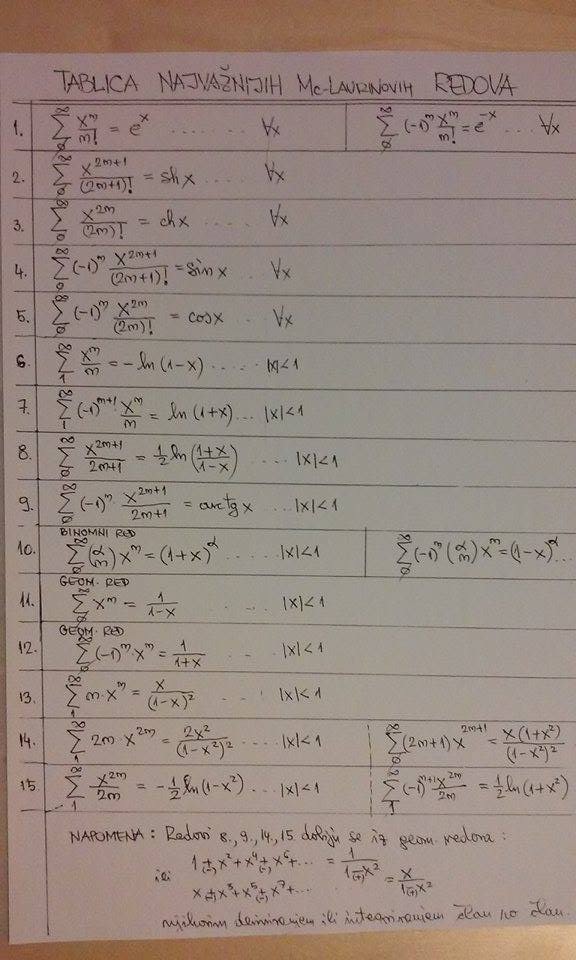 TABLICA NAJVAŽNIJIH Mc-LAURINOVIH REDOVA
1. ∑₀^∞ x^m/m! = e^x ........ ∀x ∑₀^∞ (-1)^m x^m/m! = e^-x ... ∀x
2. ∑₀^∞ x^(2m+1)/(2m+1)! = shx .... ∀x
3. ∑₀^∞ x^(2m)/(2m)! = chx .... ∀x
4. ∑₀^∞ (-1)^m x^(2m+1)/(2m+1)! = sinx .. ∀x
5. ∑₀^∞ (-1)^m x^(2m)/(2m)! = cosx .. ∀x
6. ∑₁^∞ x^m/m = -ln(1-x) ..... |x|<1
7. ∑₁^∞ (-1)^(m+1) x^m/m = ln(1+x) ... |x|<1
8. ∑₀^∞ x^(2m+1)/(2m+1) = 1/2 ln((1+x)/(1-x)) .... |x|<1
9. ∑₀^∞ (-1)^m · x^(2m+1)/(2m+1) = arctg x ... |x|<1
BINOMNI RED
10. ∑₀^∞ (α m) x^m = (1+x)^α ..... |x|<1 ∑₀^∞ (-1)^m (α m) x^m = (1-x)^α ...
GEOM. RED
11. ∑₀^∞ x^m = 1/(1-x) .. ... |x|<1
GEOM. RED
12. ∑₀^∞ (-1)^m · x^m = 1/(1+x) .. ... |x|<1
13. ∑₁^∞ m · x^m = x/(1-x)² .... |x|<1
14. ∑₁^∞ 2m · x^(2m) = 2x²/(1-x²)² .... |x|<1 ∑₀^∞ (2m+1) x^(2m+1) = x(1+x²)/(1-x²)²
15. ∑₁^∞ x^(2m)/2m = -1/2 ln(1-x²) ... |x|<1 ∑₁^∞ (-1)^(m+1) x^(2m)/2m = 1/2 ln(1+x²)
NAPOMENA: Redovi 8., 9., 14., 15 dobiju se iz geom. redova:
1 +(-) x² + x⁴ +(-) x⁶ + ... = 1/(1 -(+) x²)
ili x +(-) x³ + x⁵ +(-) x⁷ + ... = x/(1 -(+) x²)
njihovim deriviranjem ili integriranjem član po član.